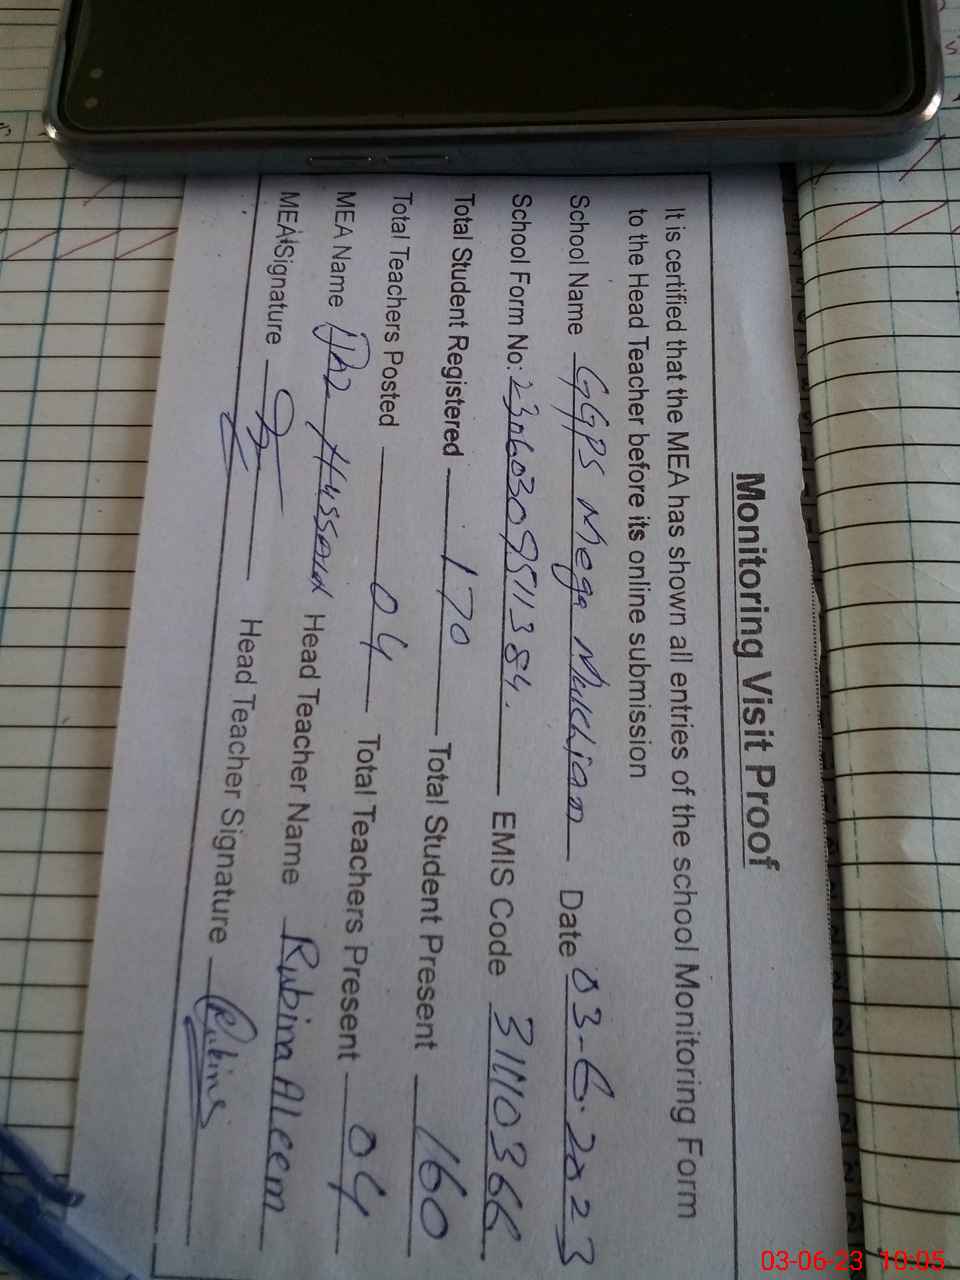 Monitoring Visit Proof
It is certified that the MEA has shown all entries of the school Monitoring Form
to the Head Teacher before its online submission
School Name GGPS Mega Mukhian Date 03-6-2023
School Form No: 23060309511384. EMIS Code 31110366
Total Student Registered 170 Total Student Present 160
Total Teachers Posted 04 Total Teachers Present 04
MEA Name Ijaz Hussain Head Teacher Name Rubina Aleem
MEA Signature Head Teacher Signature Rubina
03-06-23 10:05